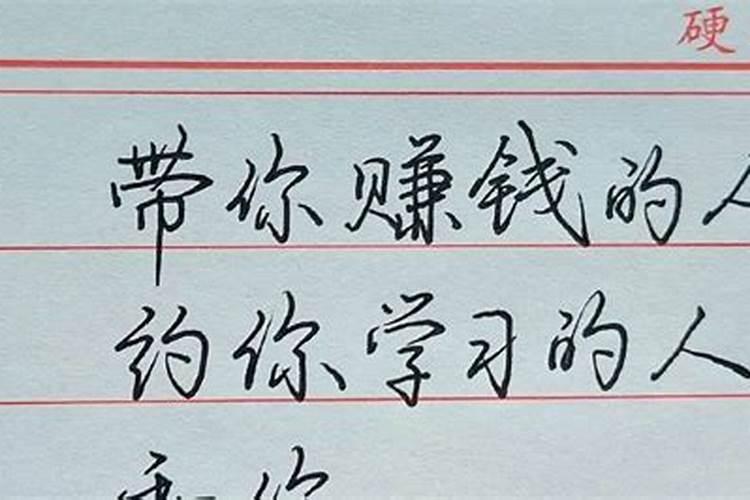 硬
带你赚钱的人
约你学习的人
你